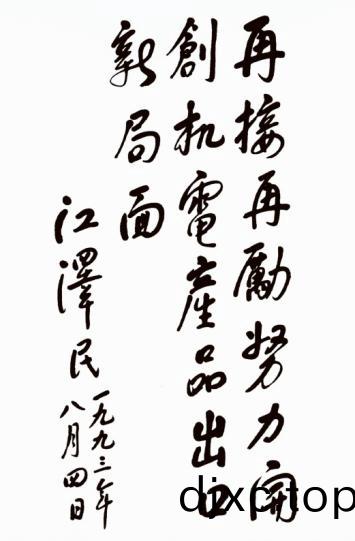 再接再勵努力開
創机電產品出口
新局面
江澤民
一九九三年
八月四日
djxc.top